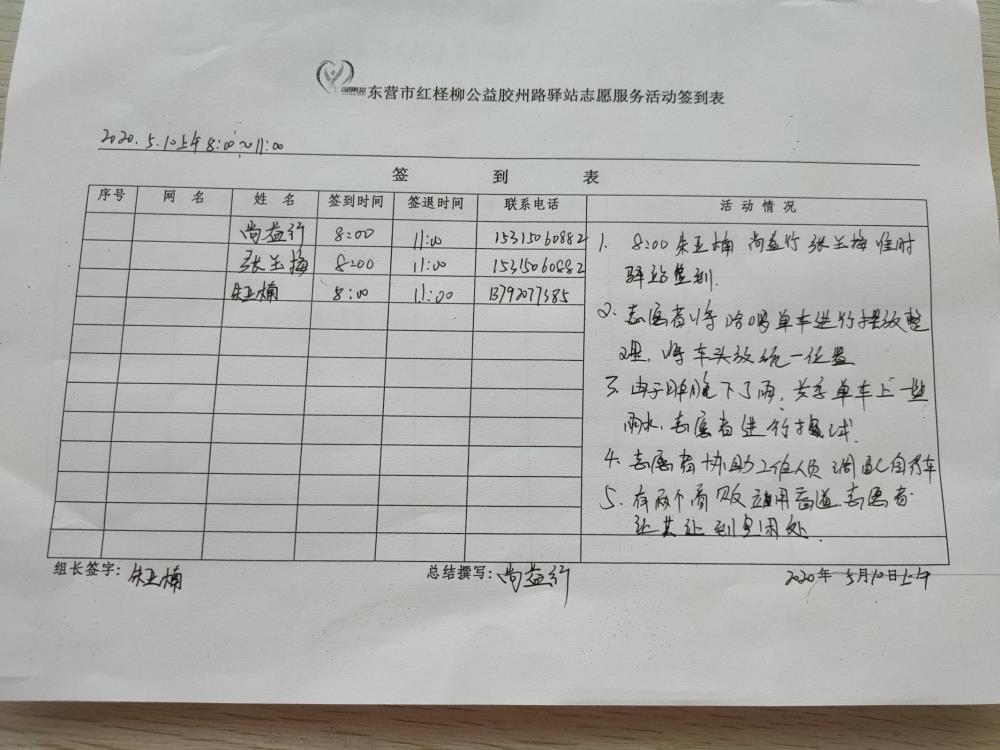 东营市红柽柳公益胶州路驿站志愿服务活动签到表
2020.5.10上午8:00~11:00
签 到 表
序号 网 名 姓 名 签到时间 签退时间 联系电话 活 动 情 况
尚益行 8:00 11:00 15315060882
张玉梅 8:00 11:00 15315060882
朱亚楠 8:00 11:00 13792077385
1. 8:00 朱亚楠 尚益行 张玉梅 准时
驿站签到.
2. 志愿者将哈啰单车进行摆放整
理, 将车头放统一位置
3. 由于昨晚下了雨, 共享单车上一些
雨水, 志愿者进行擦拭.
4. 志愿者协助工作人员调配自行车
5. 有两个商贩占用盲道, 志愿者
让其让到空闲处.
组长签字: 朱亚楠 总结撰写: 尚益行 2020年 5月10日上午